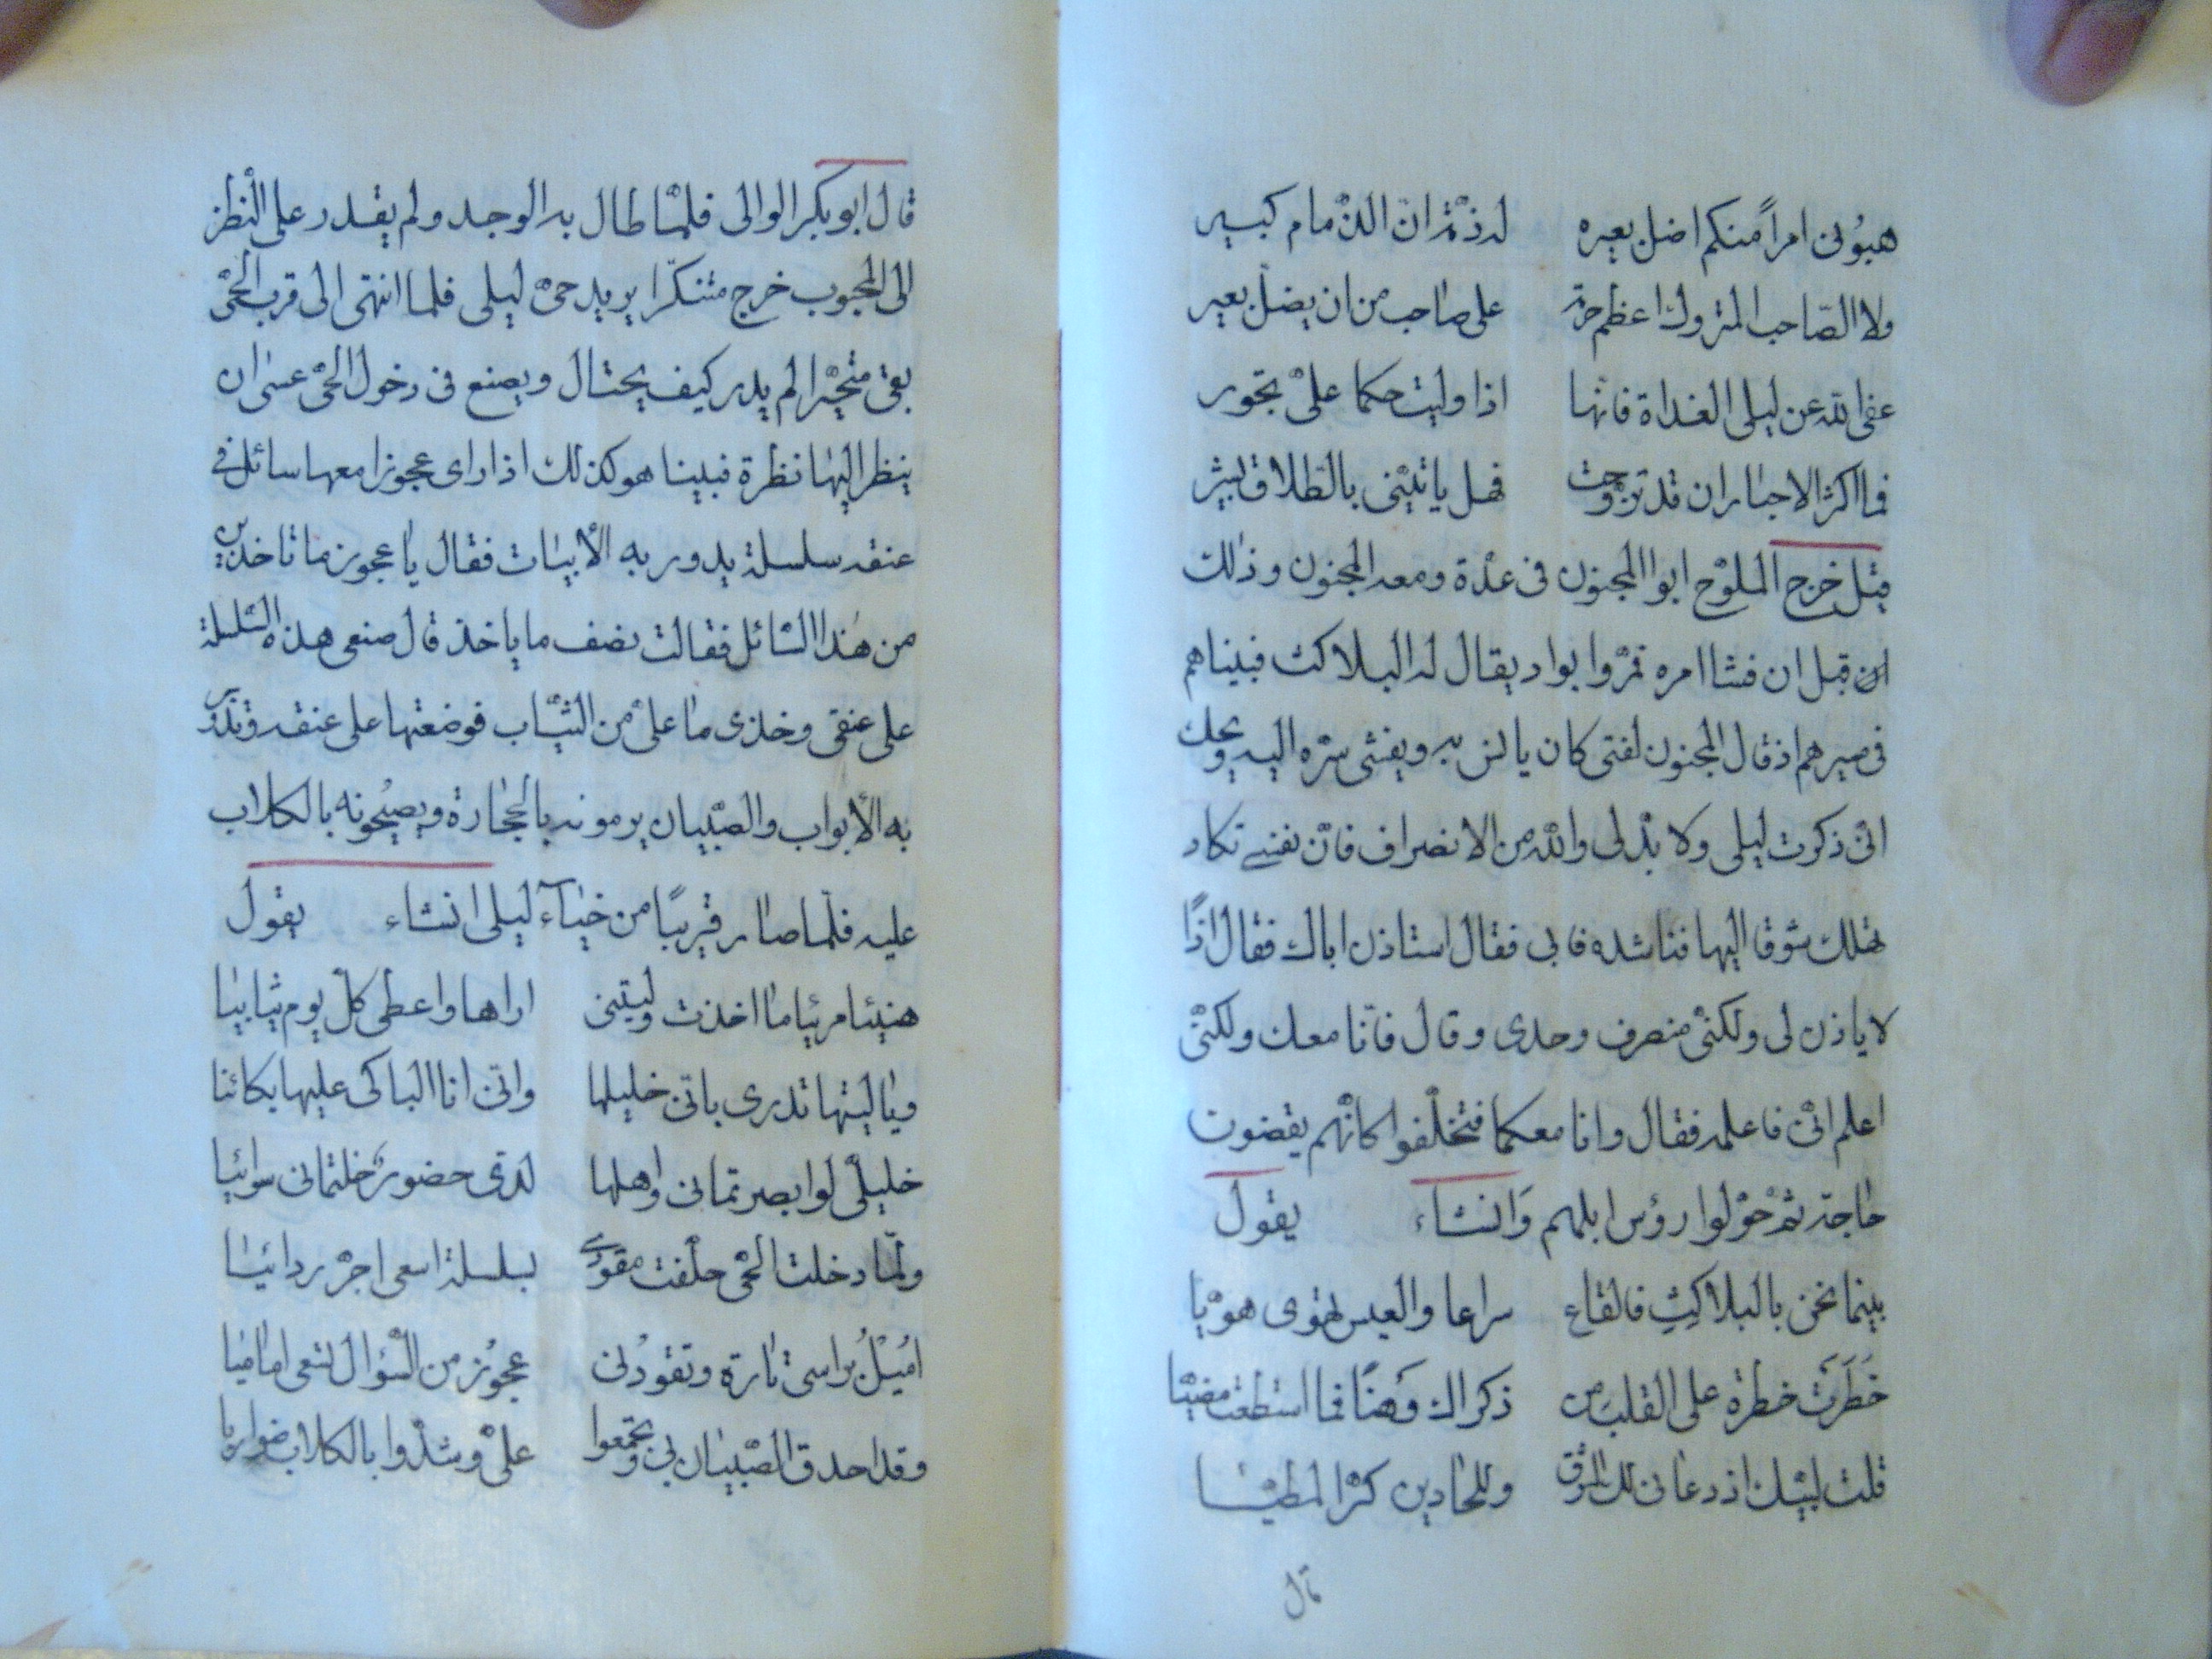 هبوُنى امرأً منكم اضل بعيره له ذمّة انّ الذّمام كبير
ولا الصّاحب المتروك اعظم حرمة على صاحب من ان يضلّ بعير
عفى الله عن ليلى الغداة فانّها اذا وليت حكما علىّ تجور
فما اكثر الاخبار ان قد تزوّجت فهل ياتينّى بالطّلاق بشير
قيل خرج الملوّح ابوا المجنون فى عدّة ومعه المجنون وذلك
من قبل ان فشا امره تمرّوا بواد يقال له البلاكث فبيناهم
فى سيرهم اذ قال المجنون لفتى كان يانس به ويفشى سرّه اليه ويحك
انّى ذكرت ليلى ولا بدّ لى والله من الانصراف فانّ نفسى تكاد
تهلك شوقا اليها فناشده فابى فقال استاذن اباك فقال اذًا
لا ياذن لى ولكنّى منصرف وحدى وقال فانّا معك ولكنّى
اعلم انّى فاعلمه فقال وانا معكما فتخلّفوا كانّهم يقضون
حاجة ثمّ حوّلوا رؤس ابلهم وَانشاء يقول
بينما نحن بالبلاكِثِ فالقاع سراعا والعيس تهوى هويّا
خَطَرَتْ خطرة على القلب من ذكراك وَهنًا فما استطعت مضيّا
قلت لبّيك اذ دعانى لك الشّوق وللحاديين كرّا المطيّا
قال
قال ابو بكر الوالى فلمّا طال به الوجد ولم يقدر على النّظر
الى المحبوب خرج متنكّرا يريد حىّ ليلى فلما انتهى الى قرب الحىّ
بقى متحيّرا لم يدر كيف يحتال ويصنع فى دخول الحىّ عسى ان
ينظر اليها نظرة فبينا هو كذلك اذا راى عجوزا معها سائل فى
عنقه سلسلة يدور به الأبيات فقال يا عجوز ما تاخذين
من هذا السّائل فقالت نصف ما ياخذ قال ضعى هذه السّلسلة
على عنقى وخذى ما علىّ من الثيّاب فوضعتها على عنقه وتدور
به الأبواب والصّبيان يرمونه بالحجارة ويصيُحونه بالكلاب
عليه فلمّا صار قريبًا من خباۤء ليلى انشاء يقول
هنيئا مريئا ما اخذت وليتنى اراها واعطى كلّ يوم ثيابيا
ويا ليتها تدرى بانّى خليلها وانّى انا الباكى عليها بكائنا
خليلىّ لو ابصرتمانى واهلها لدىّ حضور خلتمانى سوائيا
ولمّا دخلت الحىّ خلّفت مقودى بسلسلة اسعى اجرّ ردائيا
اميْلُ براسى تارة وتقودُنى عجوُز من السّؤال تسعى اماميا
وقد احدق الصّبيان بى وتجمّعوا علىّ وشدّوا بالكلاب ضواريا